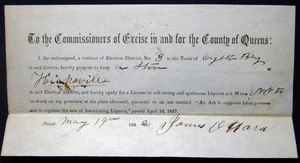 To the Commissioners of Excise in and for the County of Queens:
I, the undersigned, a resident of Election District, No. 3 in the Town of Oyster Bay
in said County, hereby propose to keep a Store
Hicksville
in said Election District, and hereby apply for a License to sell strong and spirituous Liquors and Wines Not to
be drank on my premises, at the place aforesaid, pursuant to an act entitled "An Act to suppress intemperance
and to regulate the sale of Intoxicating Liquors," passed April 16, 1857.
Dated May 19th 186 James O'Hara